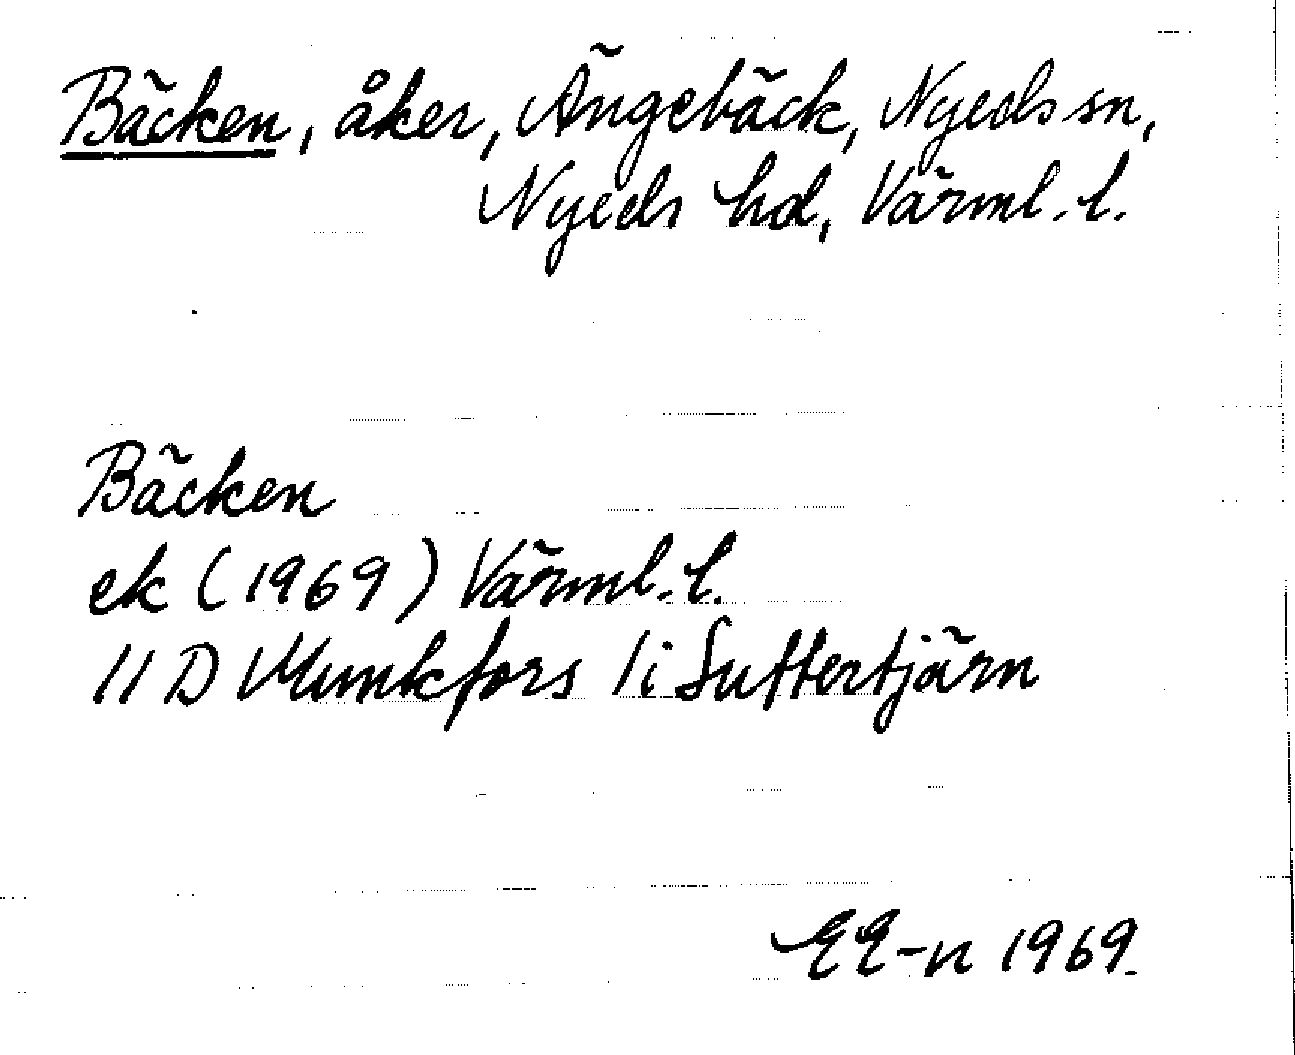 Bäcken, åker, Ängebäck, Nyeds sn,
Nyeds hd, Värml. l.
Bäcken
ek (1969) Värml. l.
11 D Munkfors 1i Suttertjärn
EE-n 1969